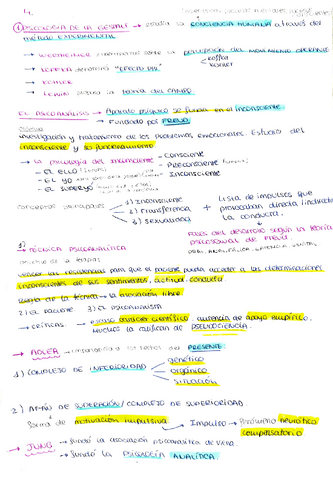 4.
1) PSICOLOGÍA DE LA GESTALT → estudia la CONCIENCIA HUMANA a través del
método EXPERIMENTAL
→ WERTHEIMER sobre la percepción del MOVIMIENTO APARENTE
→ KOFFKA "EFECTO PHI"
koffka
→ KÖHLER
→ LEWIN la teoría del CAMPO
EL PSICOANÁLISIS → Aparato psíquico se funda en el inconsciente
→ Fundado por FREUD
investigación y tratamiento de los problemas emocionales. Estudio del
inconsciente y su funcionamiento
→ La psicología del inconsciente
- Consciente
- EL ELLO
- Preconsciente
- EL YO
- Inconsciente
- EL SUPERYÓ
Conceptos principales
1) Inconsciente
2) Transferencia
3) Sexualidad
+ Lista de impulsos que
provocaban directa/indirecta
la conducta.
Fases del desarrollo según la teoría
psicosexual de Freud
→ TÉCNICA PSICOANALÍTICA
vencer las resistencias para que el paciente pueda acceder a las determinaciones
inconscientes de sus sentimientos, actitud, conducta
regla de la técnica → la asociación libre
2) El paciente 3) El psicoanalista
→ críticas. → escaso carácter científico, ausencia de apoyo empírico.
muchos la califican de PSEUDOCIENCIA.
→ ADLER → importancia a los hechos del PRESENTE
1) COMPLEJO DE INFERIORIDAD
genético
orgánico
situación
2) AFÁN DE SUPERACIÓN / COMPLEJO DE SUPERIORIDAD.
forma de motivación impulsiva → Impulso → fenómeno neurótico
compensatorio
→ JUNG → fundó la asociación psicoanalítica de Viena
→ fundó la PSICOLOGÍA ANALÍTICA.